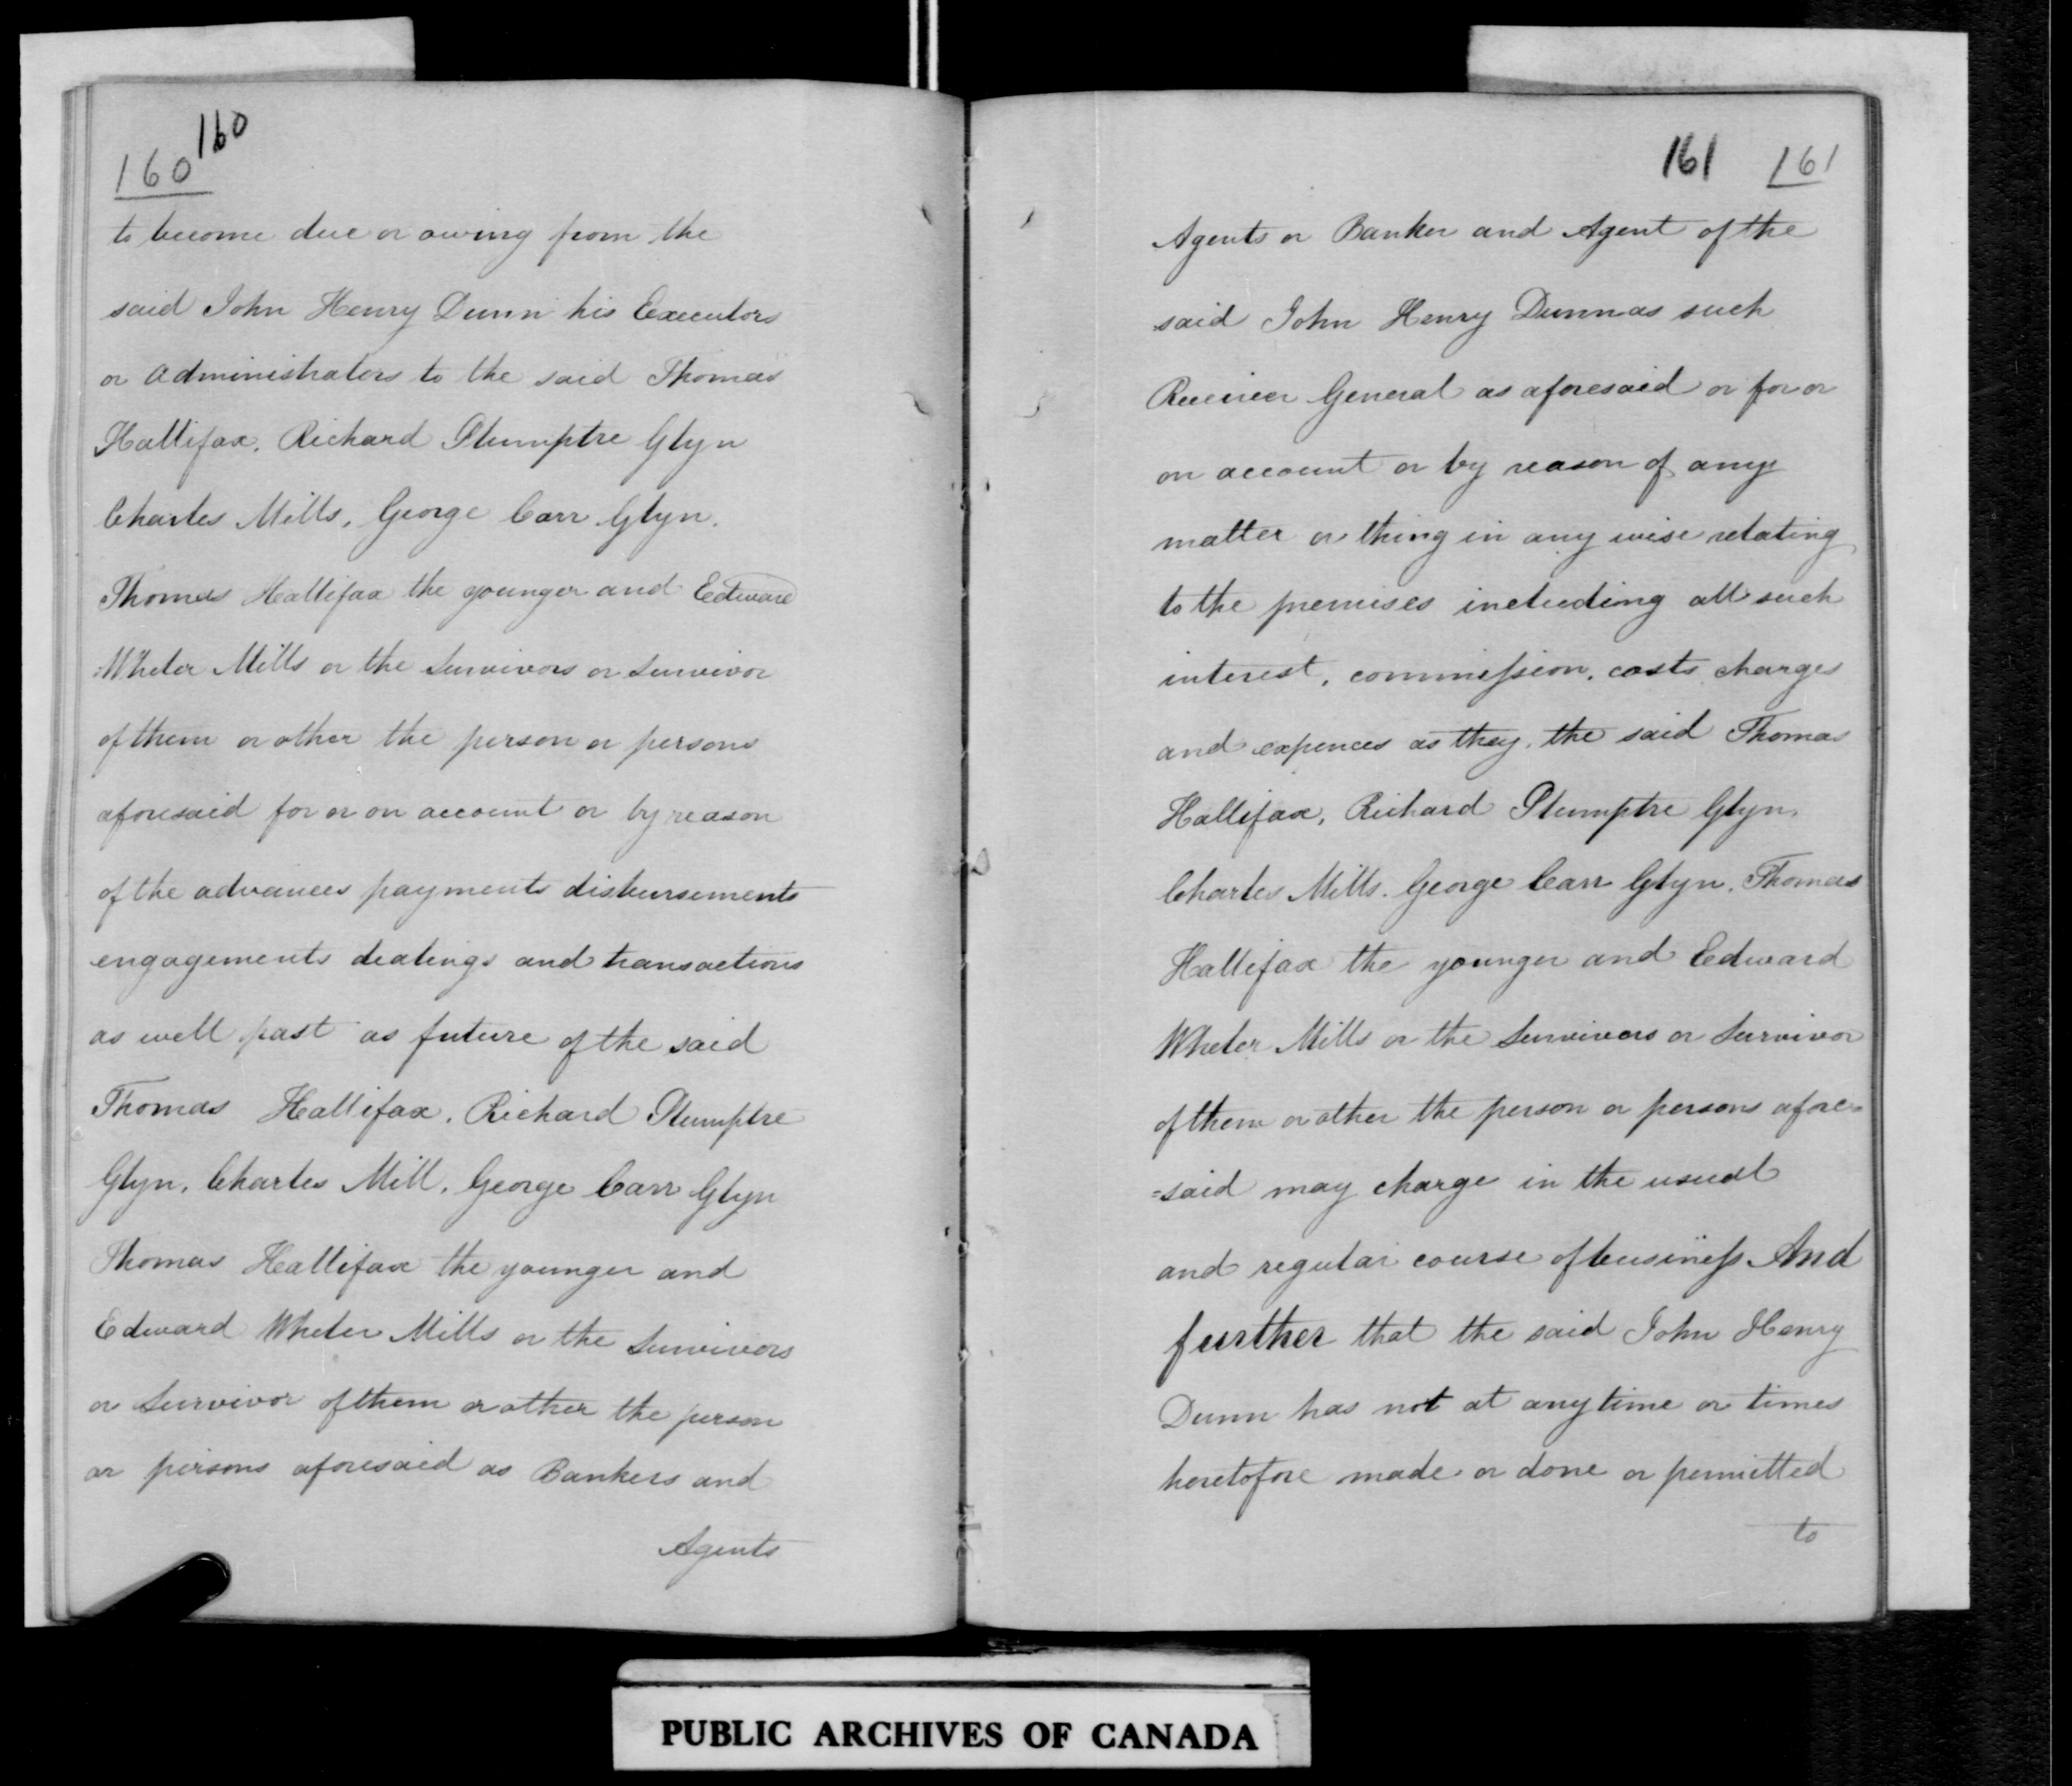 160 160
to become due or owing from the
said John Henry Dunn his Executors
or Administrators to the said Thomas
Hallifax, Richard Plumptre Glyn
Charles Mills, George Carr Glyn,
Thomas Hallifax the younger and Edward
Wheler Mills or the Survivors or Survivor
of them or other the person or persons
aforesaid for or on account or by reason
of the advances payments disbursements
engagements dealings and transactions
as well past as future of the said
Thomas Hallifax, Richard Plumptre
Glyn, Charles Mill, George Carr Glyn
Thomas Hallifax the younger and
Edward Wheler Mills or the Survivors
or Survivor of them or other the person
or persons aforesaid as Bankers and
Agents
161 161
Agents or Banker and Agent of the
said John Henry Dunn as such
Receiver General as aforesaid or for or
on account or by reason of any
matter or thing in any wise relating
to the premises including all such
interest, commifsion, costs, charges
and expences as they, the said Thomas
Hallifax, Richard Plumptre Glyn,
Charles Mills, George Carr Glyn, Thomas
Hallifax the younger and Edward
Wheler Mills or the Survivors or Survivor
of them or other the person or persons afore=
=said may charge in the usual
and regular course of businefs And
further that the said John Henry
Dunn has not at any time or times
heretofore made or done or permitted
to
PUBLIC ARCHIVES OF CANADA